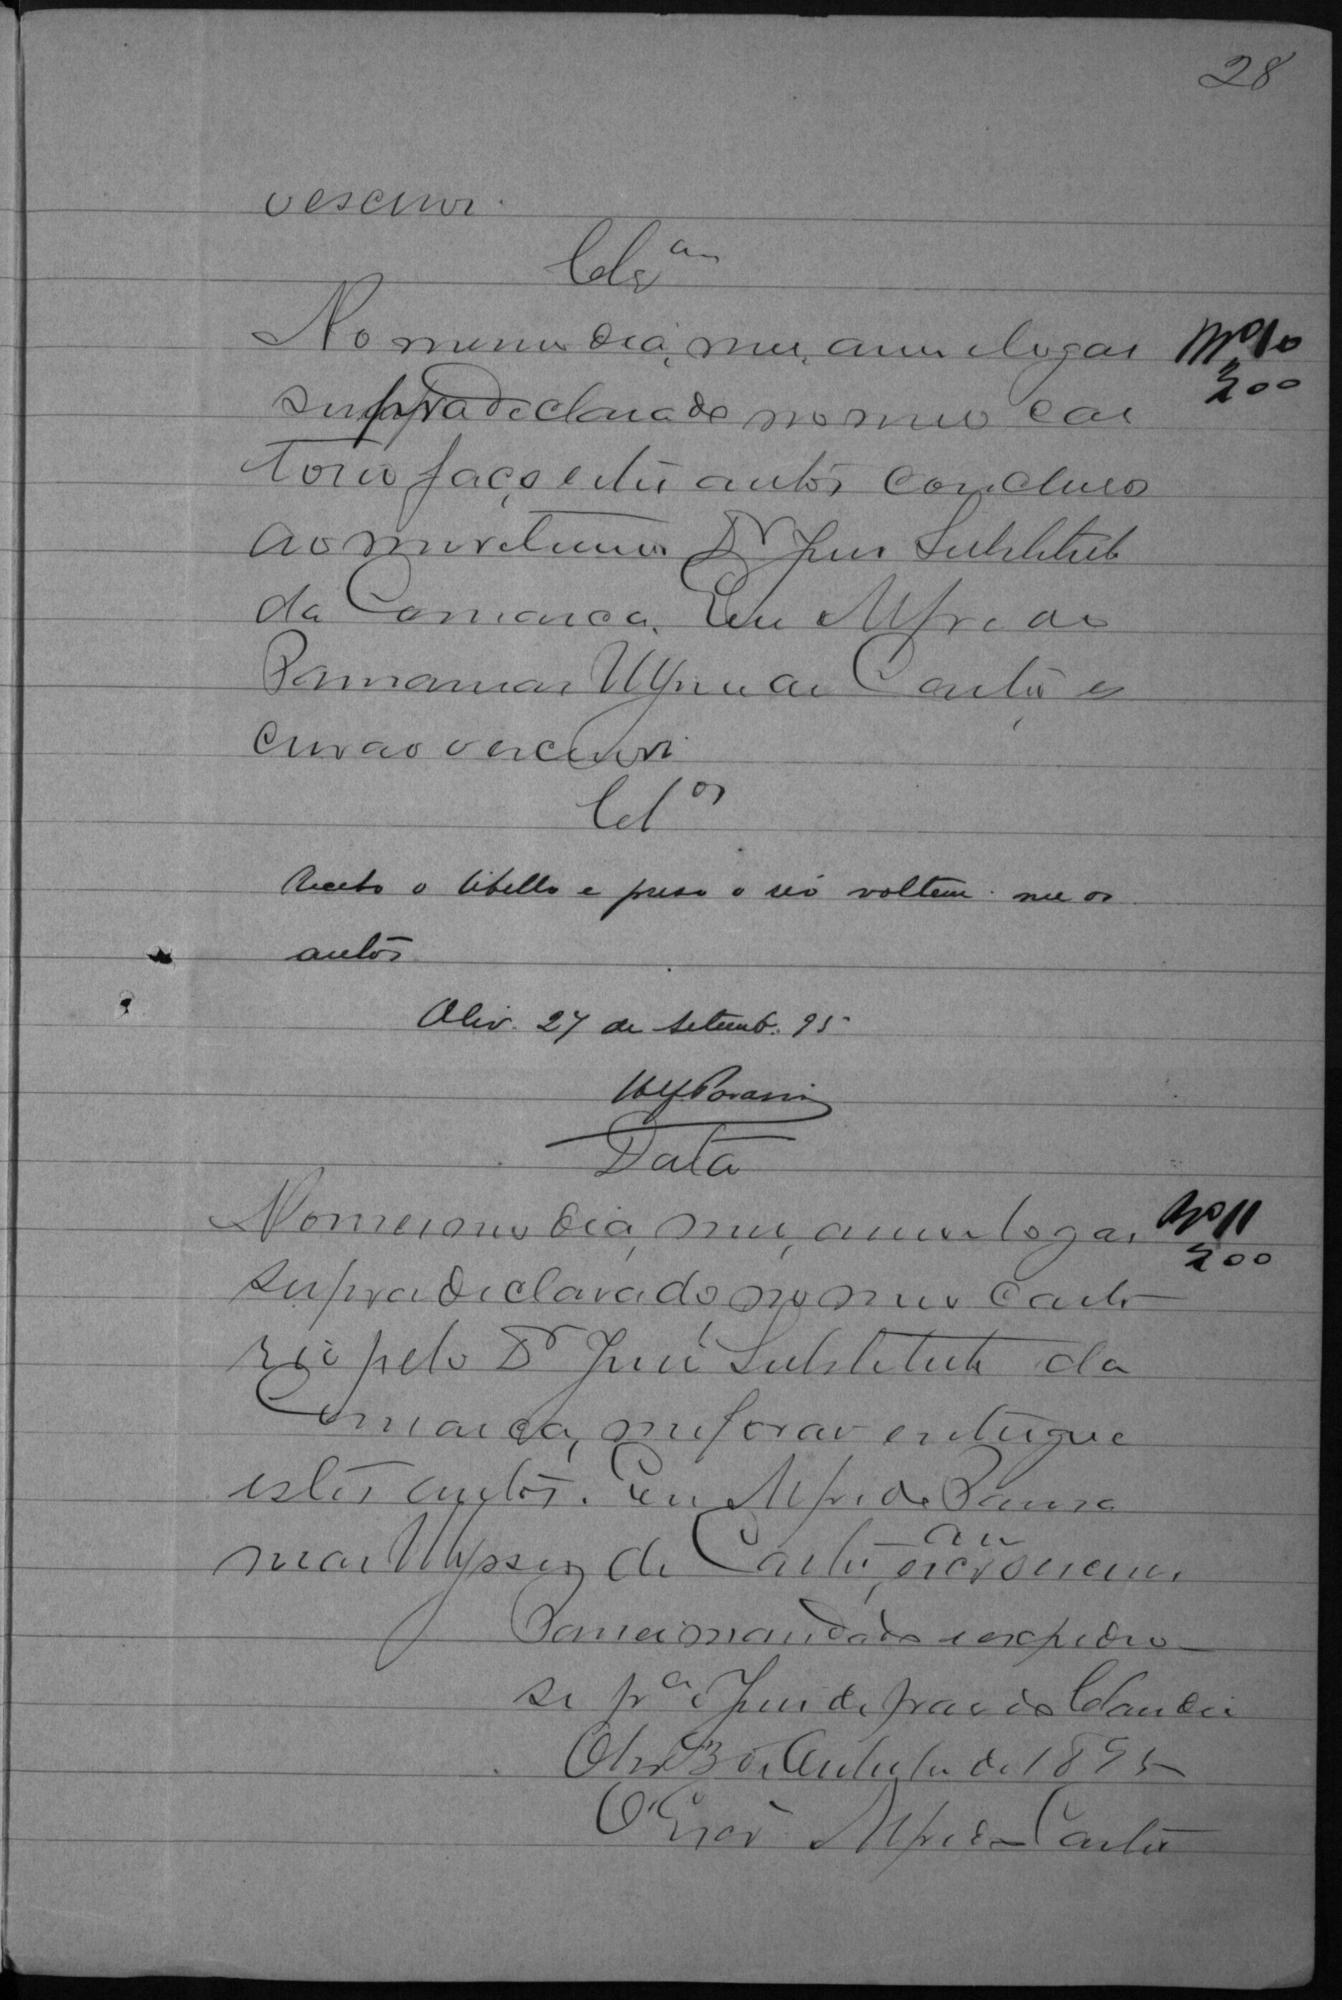 28
o escrevi.
Clsam
No mesmo dia, mez, anno e logar
Nº 10
300
supradeclarado no meu car
torio faço estes autos conclusos
ao meretissimo Dr Juiz Substituto
da Comarca. Eu Alfredo
Ulysses de Castro es
crivão o escrevi
Clos
Recebo o libello e preso o réo voltem-me os
autos.
Oliv. 27 de Setemb. 95
Data
No mesmo dia, mez, anno e logar
Nº 11
200
supradeclarado, no meu carto
rio pelo Dr Juiz Substituto da
Comarca, me forão entregue
estes autos. Eu Alfredo
Ulysses de Castro, escrvam o escrevi
Passei mandado e expedio
se pa o Juiz de paz do Claudio
Olivª 3 de Outubro de 1895
O Escrv Alfredo Castro